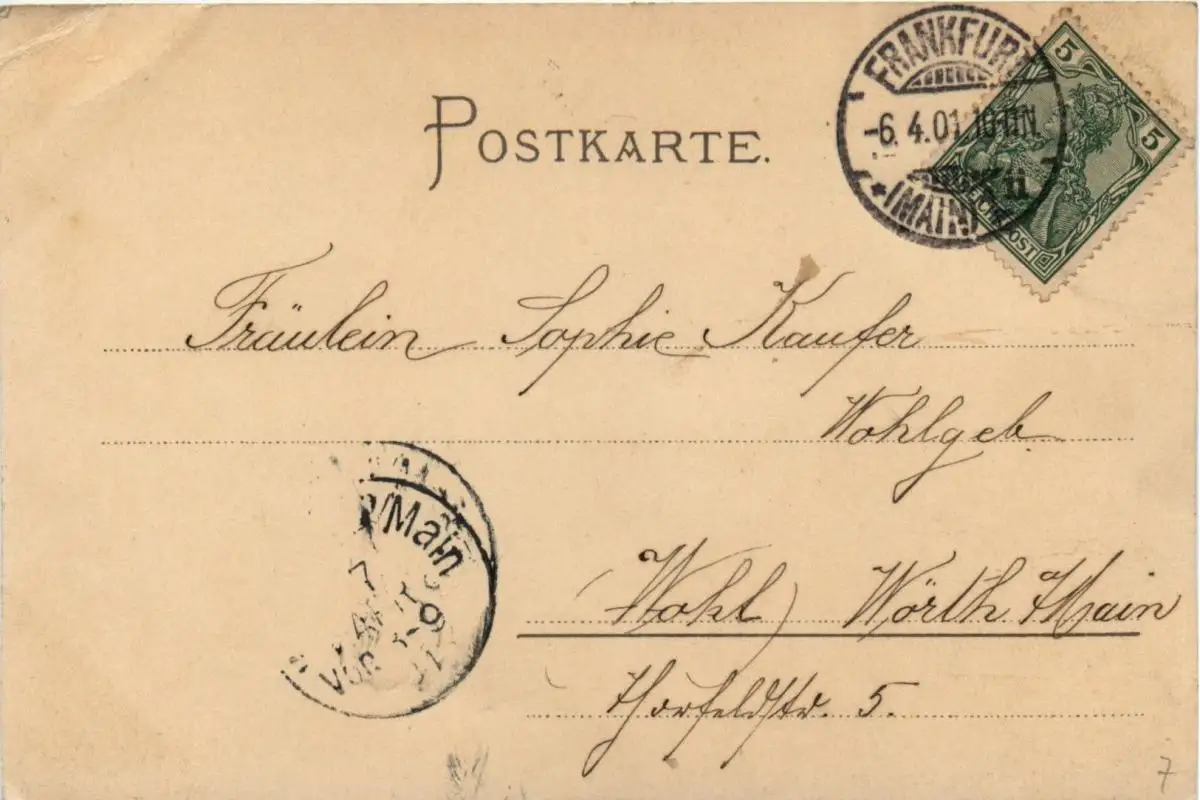 POSTKARTE.
FRANKFURT
-6.4.01.10-11N.
*(MAIN)
5
5
Fräulein Sophie Kaufer
Wohlgeb
/Main
7
VOR 8-9
(Wohl) Wörth Main
5.
7